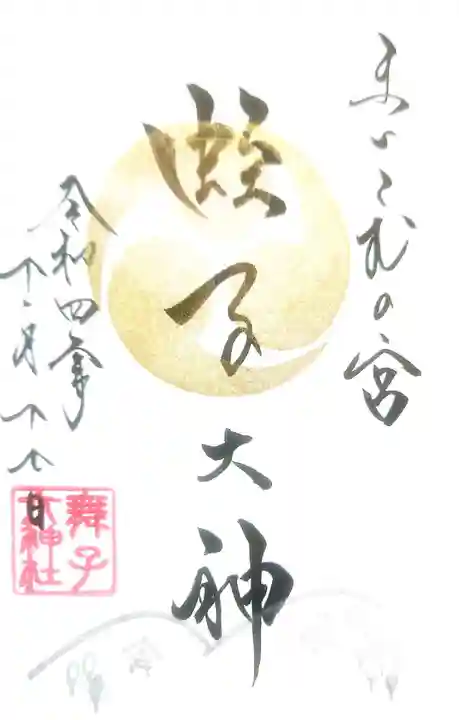 まいこむの宮
蛭子大神
令和四年
月十七日
舞子
六神社